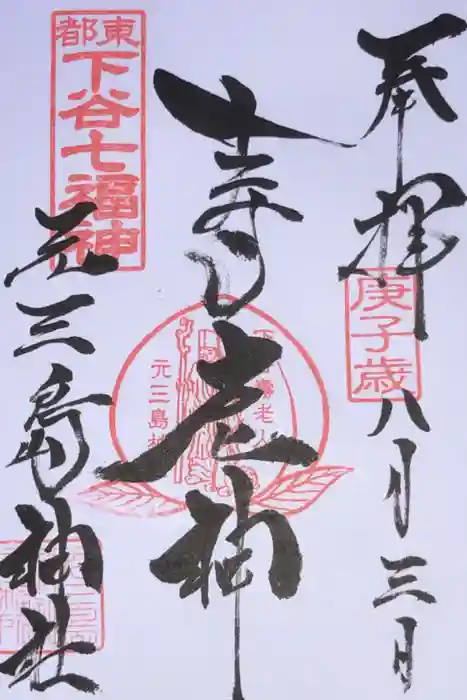 奉拝
庚子歳
八月三日
寿老神
元三島
東都
下谷七福神
元三島神社